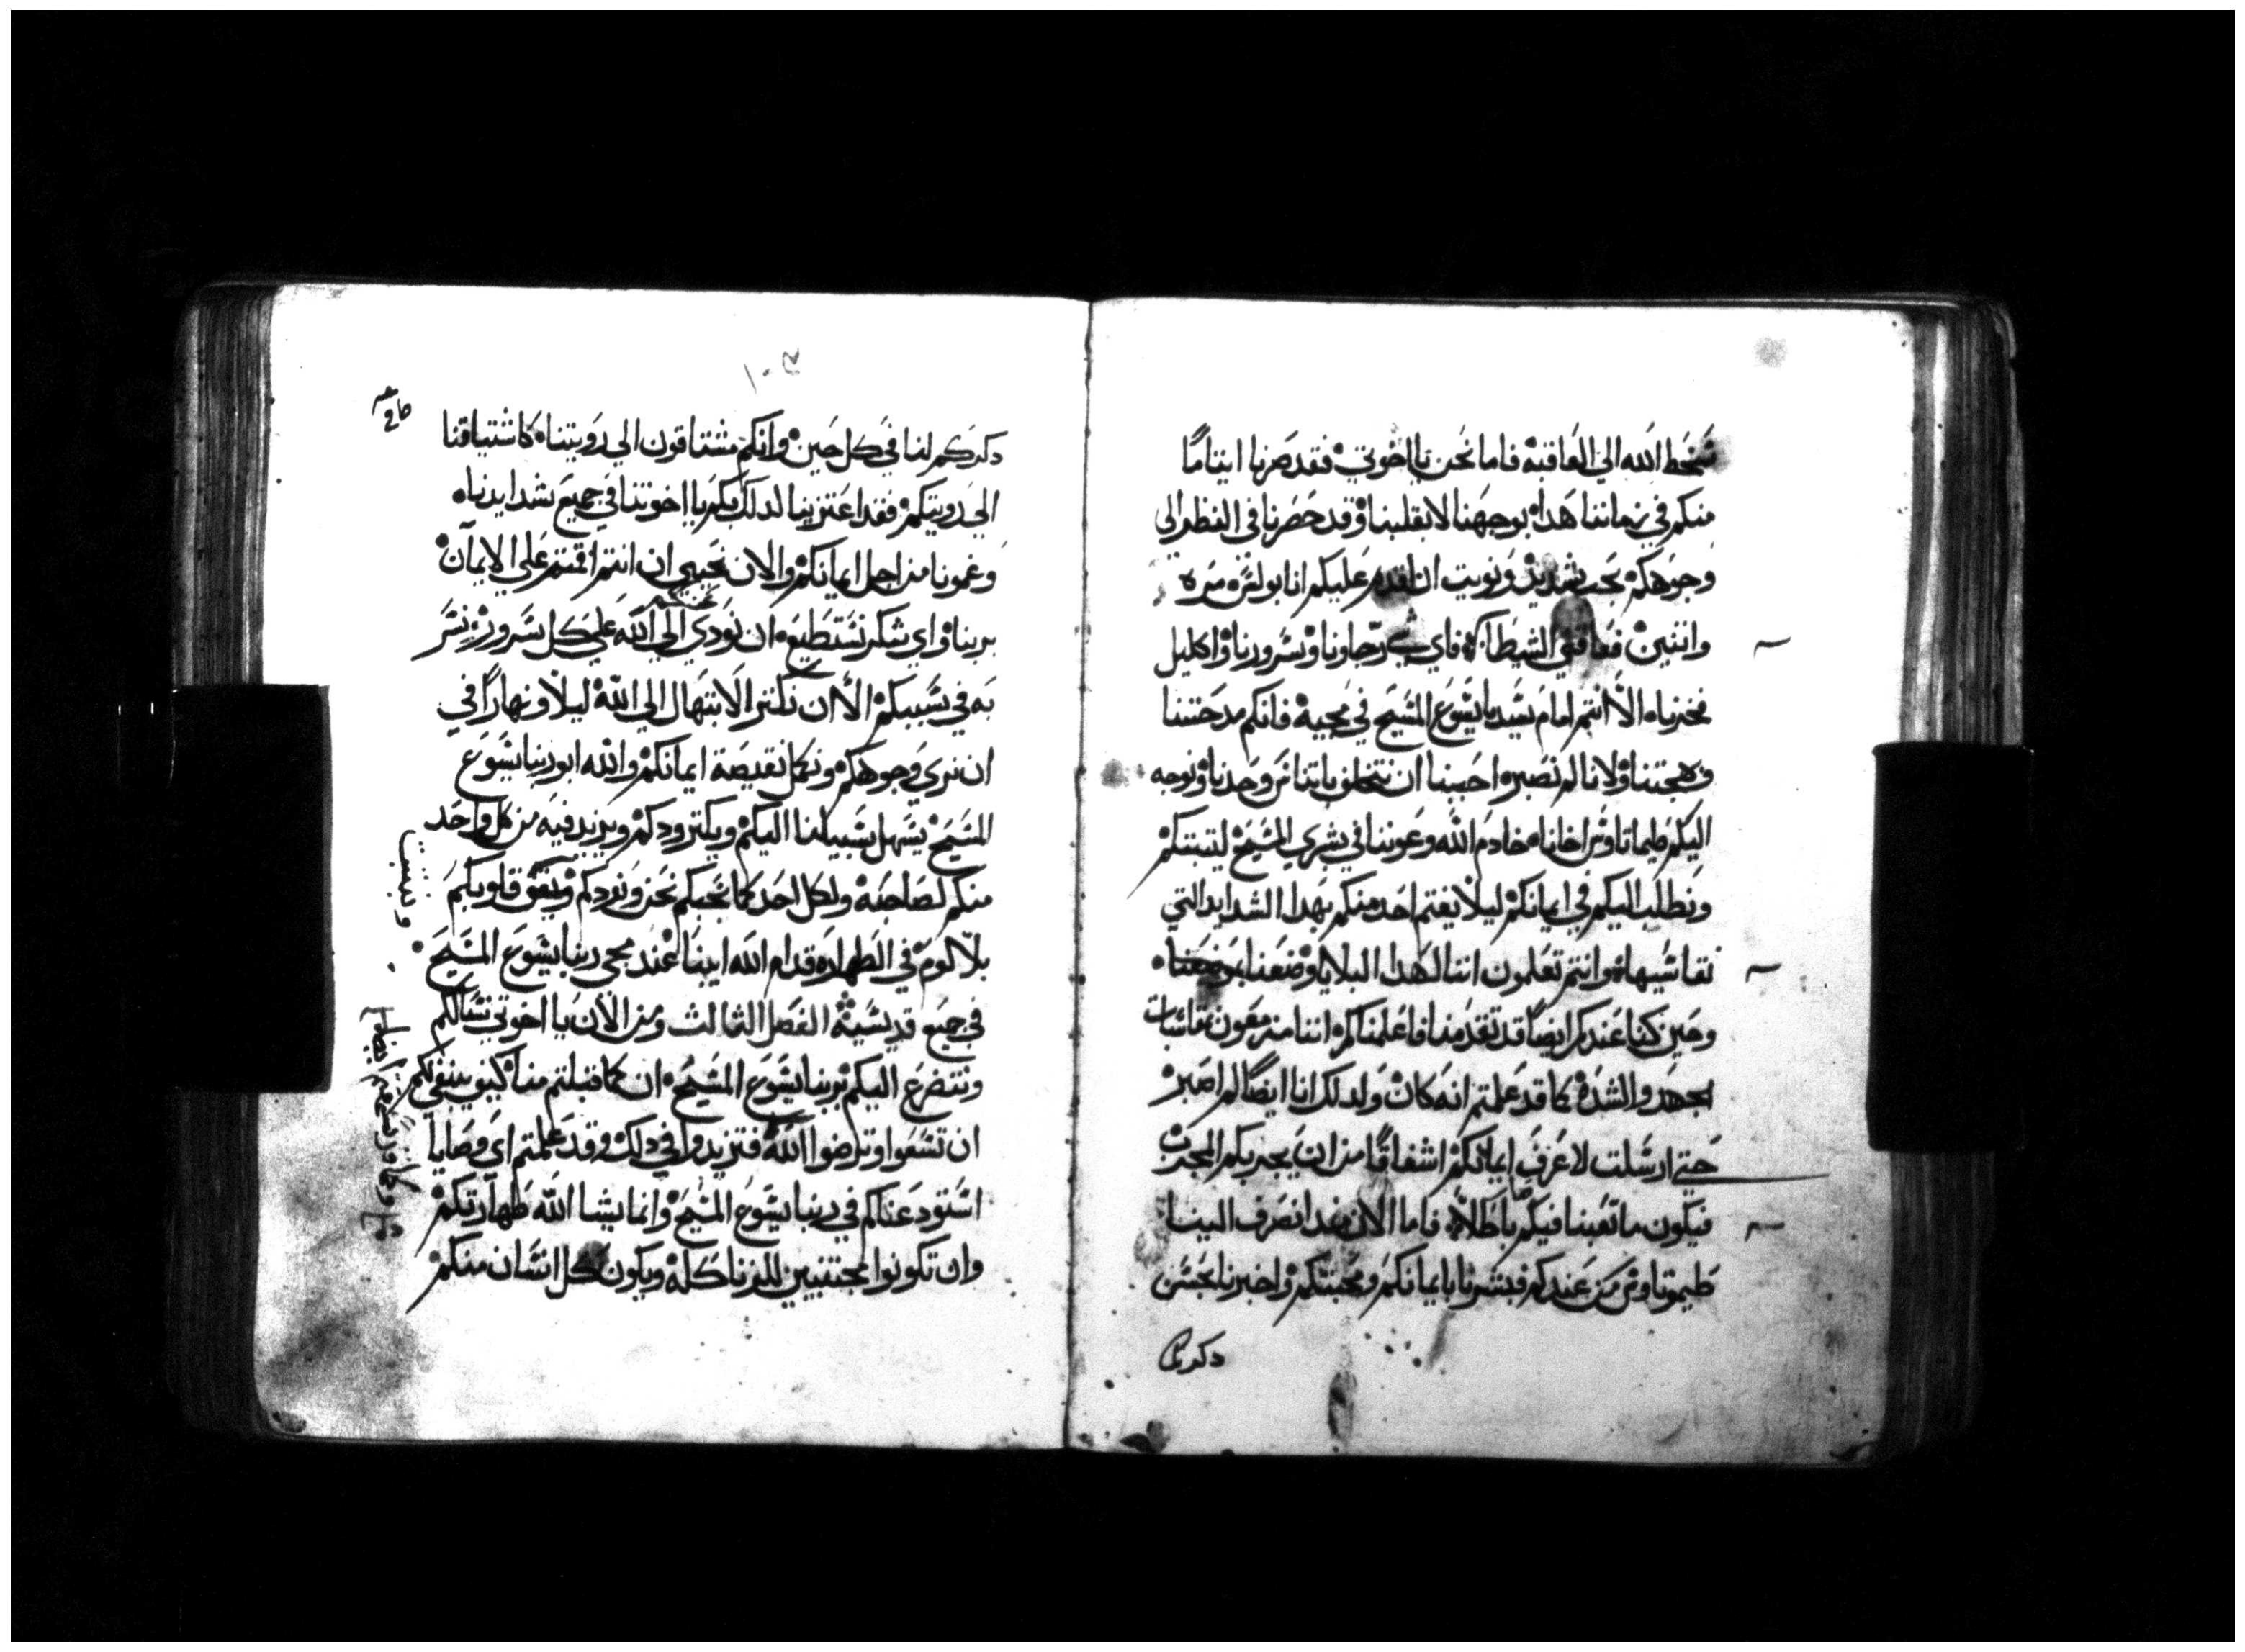 سخط الله الي العاقبه فاما نحن يااخوتي فقد صرنا ايتاما
منكم في زماننا هدا بوجهنا لا بقلبنا وقد حضرنا في النظر الي
وجوهكم بحب شديد ونويت ان اقدم عليكم انا بولس مره
واثنين فعاقني الشيطان فاي رجاونا وسرورنا واكليل
فخرنا الا انتم امام سيدنا يسوع المسيح في مجيه فانكم مدحتنا
وبهجتنا ولانا لم نصبر احببنا ان نتخلف باتناس وحدنا ونوجه
اليكم طيماتاوس اخانا خادم الله وعوننا في بشري المسيح ليتبتكم
ونطلب اليكم في ايمانكم ليلا يغتم احد منكم بهدا الشدايد التي
نقاسيها وانتم تعلمون اننا لهدا البلايا وضعنا
وحين كنا عندكم ايضا قد تقدمنا فاعلمناكم اننا مزمعون بمقاسات
الجهد والشده كما قد علمتم انه كان ولدلك انا ايضا لم اصبر
حتي ارسلت لاعرف ايمانكم اشفاقا من ان يجربكم المجرب
فيكون ما تعبنا فيكم باطلا فاما الان مند انصرف الينا
طيموتاوس من عندكم فبشرنا بايمانكم ومحبتكم واخبرنا بحسن
دكركم
١٠٥
دكركم لنا في كل حين وانكم مشتاقون الي رويتنا كاشتياقنا
الي رويتكم فقد اعتزينا لدلك بكم يااخوتنا في جميع شدايدنا
وغمونا من اجل ايمانكم والان نحيي ان انتم اقمتم علي الايمان
بربنا واي شكر نستطيع ان نودي الي الله علي كل سرور نسر
به في سببكم الا ان نكتر الابتهال الي الله ليلا ونهارا في
ان نري وجوهكم ونكمل نقيصة ايمانكم والله ابو ربنا يسوع
المسيح يسهل سبيلنا اليكم ويكتر ودكم ويزيد فيه من كل واحد
منكم لصاحبه ولكل احد كما نحبكم نحن ونودكم قلوبكم
بلا لوم في الطهاره قدام الله ابينا عند مجي ربنا يسوع المسيح
في جميع قديسيه الفصل التالت ومن الان يا اخوتي نسالكم
ونتضرع اليكم بربنا يسوع المسيح ان كما قبلتم منا كيف ينبغي لكم
ان تسعوا وترضوا الله فتزيدوا في دلك وقد علمتم اي وصايا
استودعناكم في ربنا يسوع المسيح وانما يشا الله طهارتكم
وان تكونوا مجتنبين للزنا كله ويكون كل انسان منكم